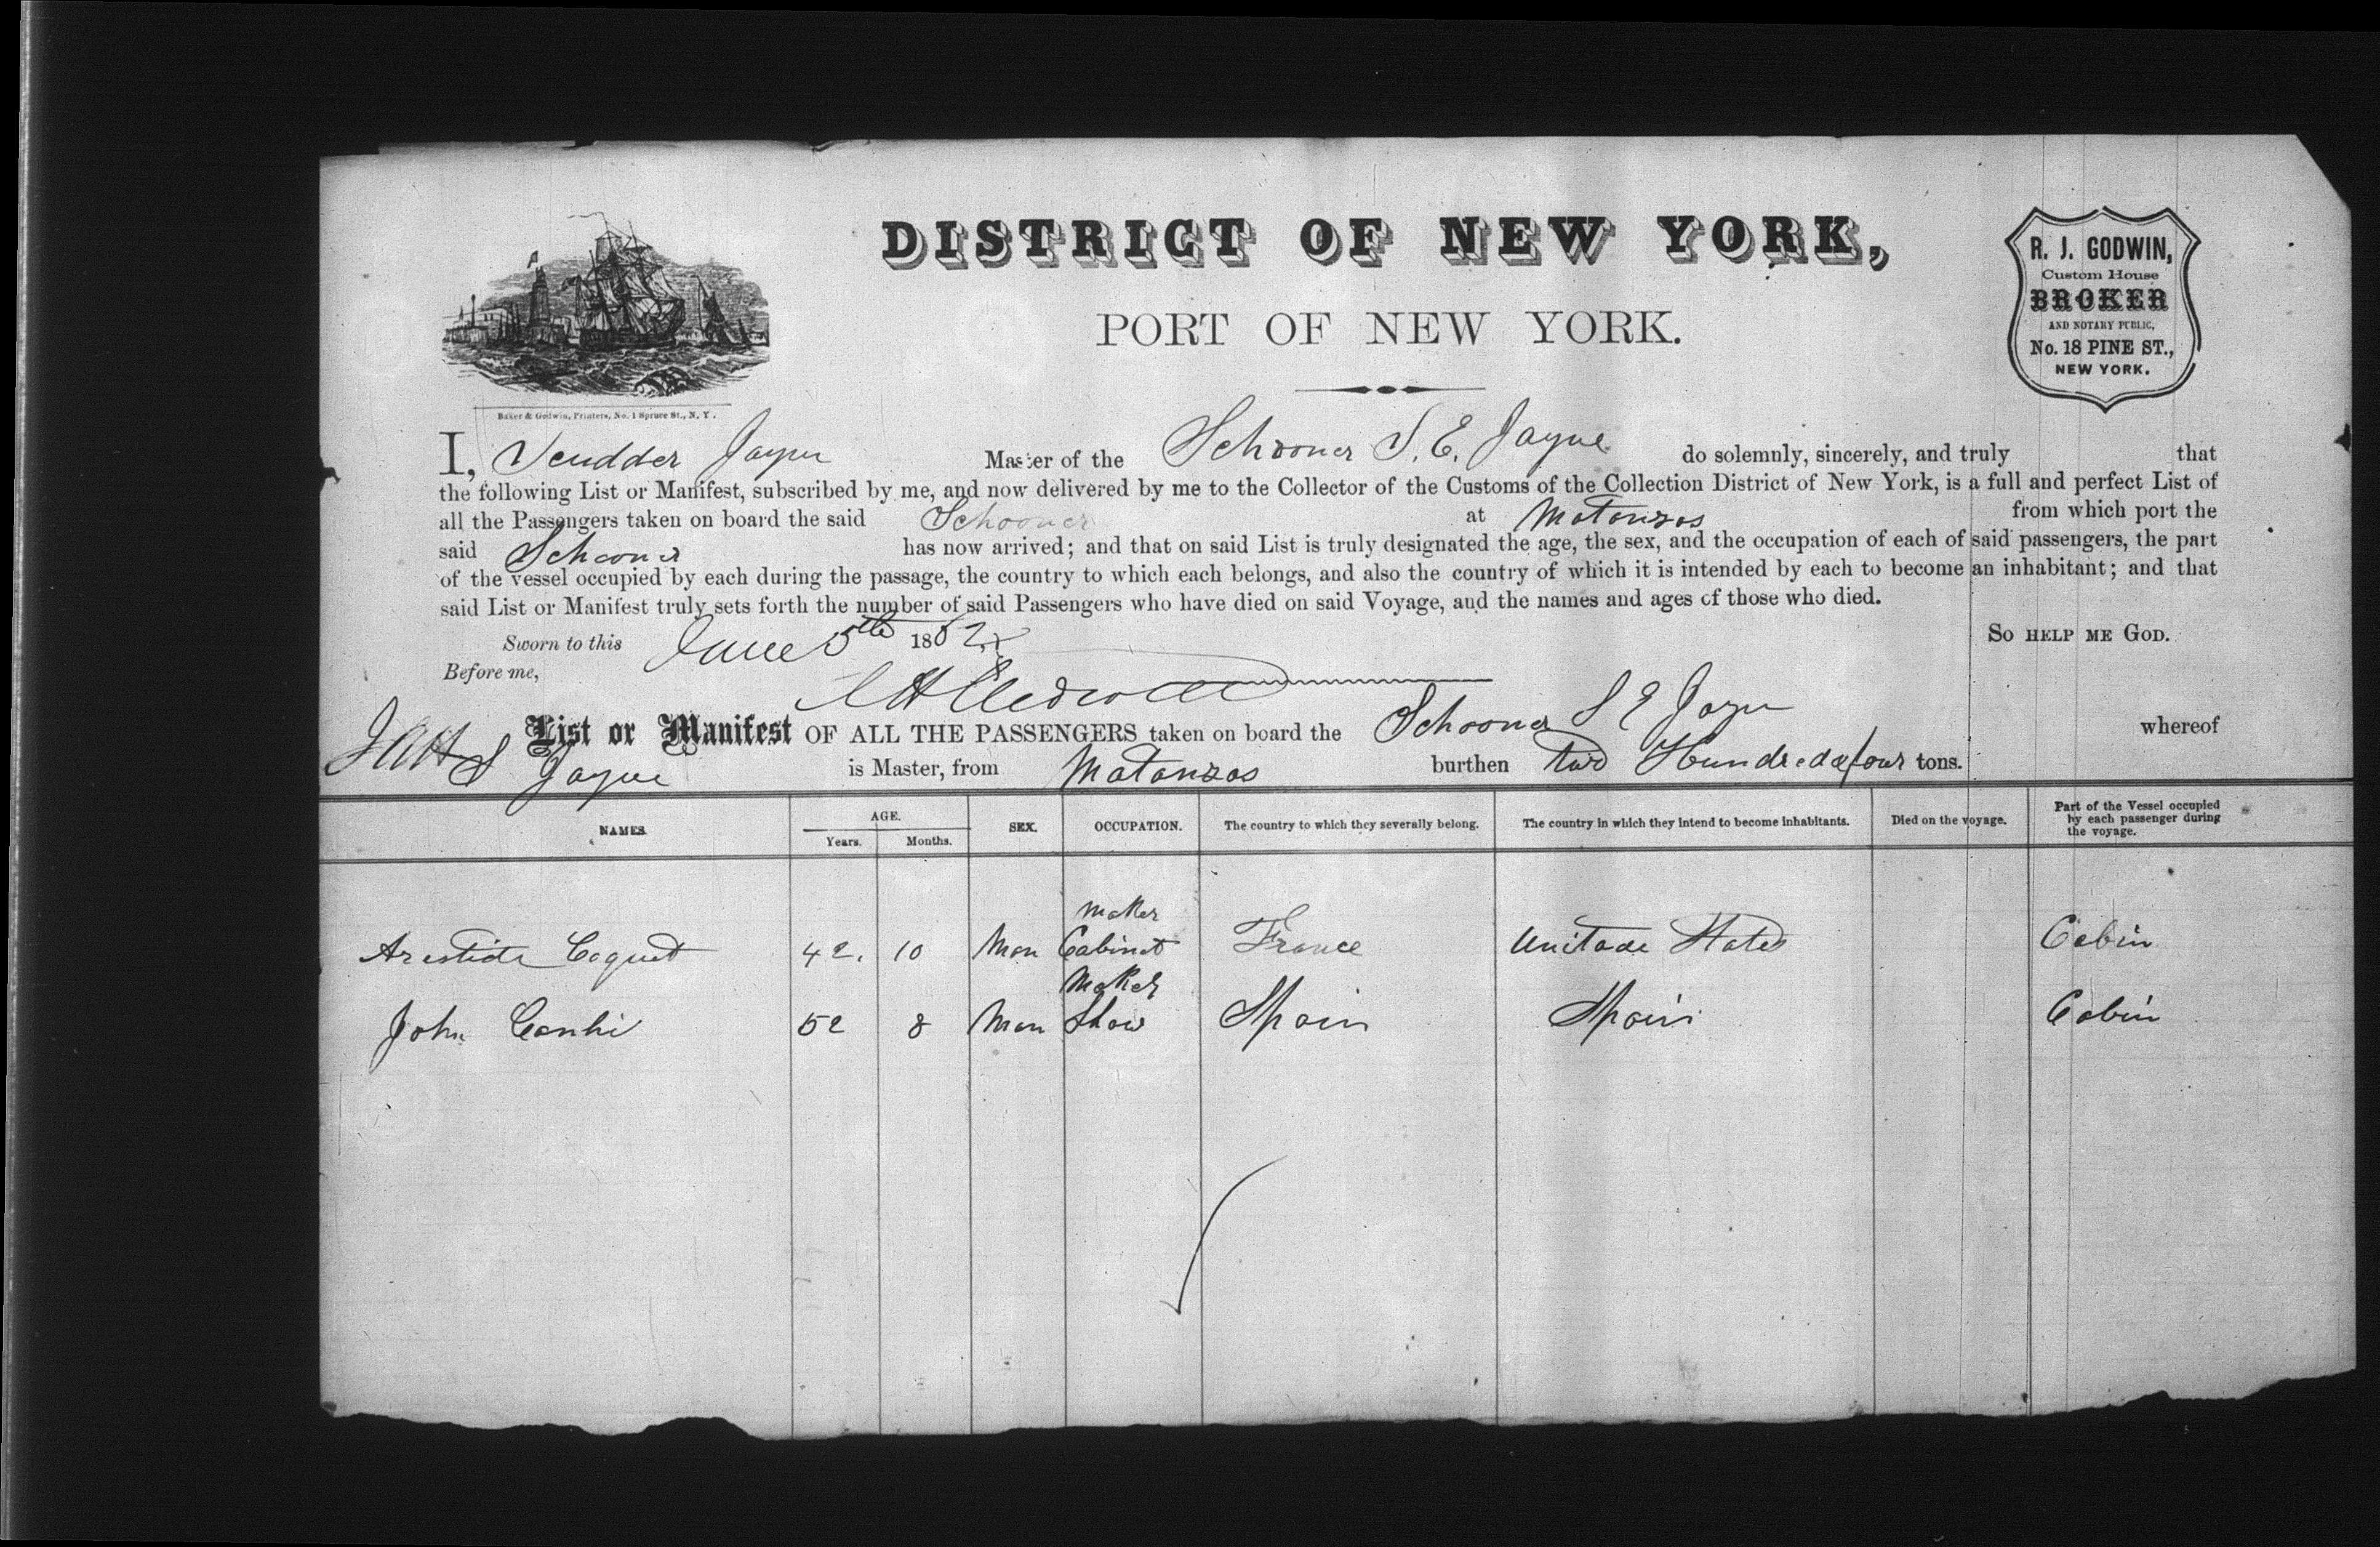 DISTRICT OF NEW YORK,
PORT OF NEW YORK.
R. J. GODWIN,
Custom House
BROKER
AND NOTARY PUBLIC,
No. 18 PINE ST.,
NEW YORK.
Baker & Godwin, Printers, No. 1 Spruce St., N. Y.
I, Scudder Jayne Master of the Schooner S. E. Jayne do solemnly, sincerely, and truly that
the following List or Manifest, subscribed by me, and now delivered by me to the Collector of the Customs of the Collection District of New York, is a full and perfect List of
all the Passengers taken on board the said Schooner at Matanzas from which port the
said Schooner has now arrived; and that on said List is truly designated the age, the sex, and the occupation of each of said passengers, the part
of the vessel occupied by each during the passage, the country to which each belongs, and also the country of which it is intended by each to become an inhabitant; and that
said List or Manifest truly sets forth the number of said Passengers who have died on said Voyage, and the names and ages of those who died.
Sworn to this June 5th 1862 SO HELP ME GOD.
Before me,
List or Manifest OF ALL THE PASSENGERS taken on board the Schooner S E Jayne whereof
S Jayne is Master, from Matanzas burthen two Hundred & four tons.
NAMES. AGE. SEX. OCCUPATION. The country to which they severally belong. The country in which they intend to become inhabitants. Died on the voyage. Part of the Vessel occupied by each passenger during the voyage.
Years. Months.
maker
Arestide Coquet 42. 10 Man Cabinet France Unitade States Cabin
Maker
John 52 8 Man Show Spain Spain Cabin